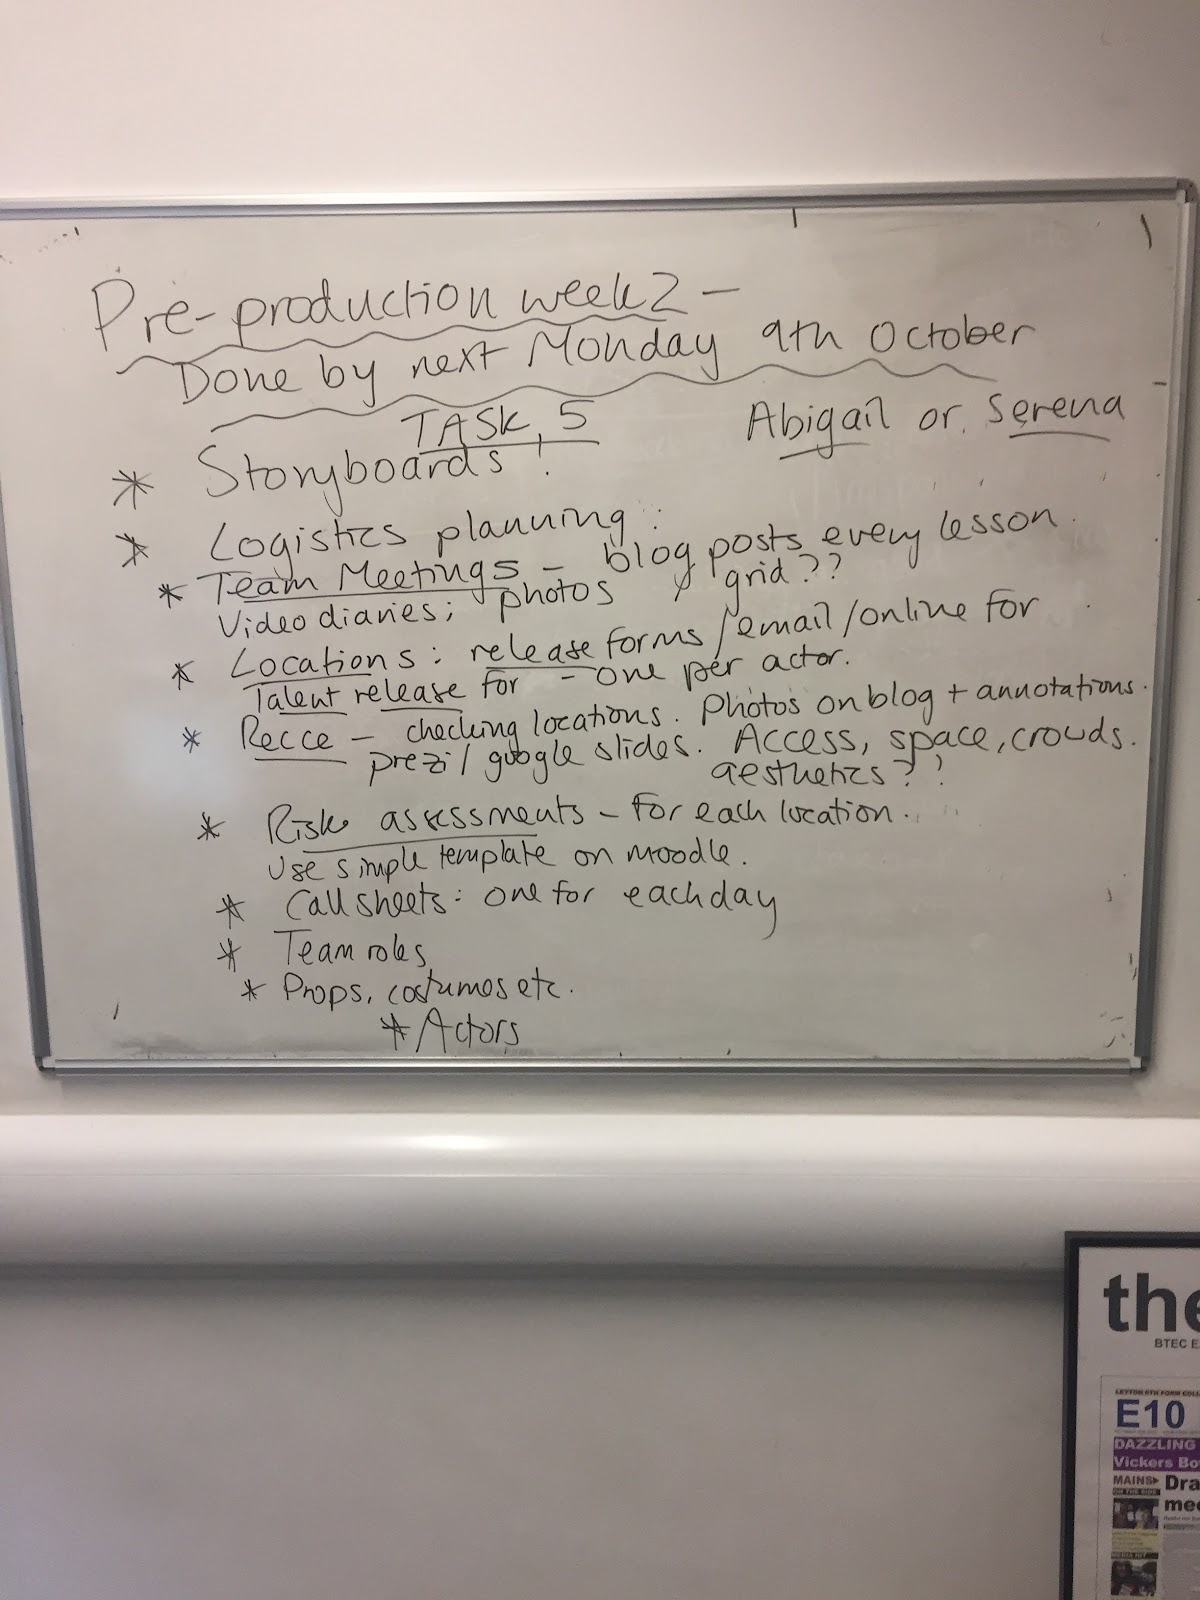 Pre-production week 2 -
Done by next Monday 9th October
TASK 5
Abigail or Serena
* Storyboards!
* Logistics planning:
* Team Meetings - blog posts every lesson.
Video diaries; photos, grid??
* Locations: release forms/email/online for
Talent release for - one per actor.
* Recce - checking locations. Photos on blog + annotations.
prezi/google slides. Access, space, crowds.
aesthetics??
* Risk assessments - for each location.
Use simple template on moodle.
* Call sheets: one for each day
* Team roles
* Props, costumes etc.
* Actors
the
BTEC E
LEYTON 6TH FORM COLL
E10
DAZZLING
Vickers Bo
MAINS
ON THE SIDE
Dra
mee